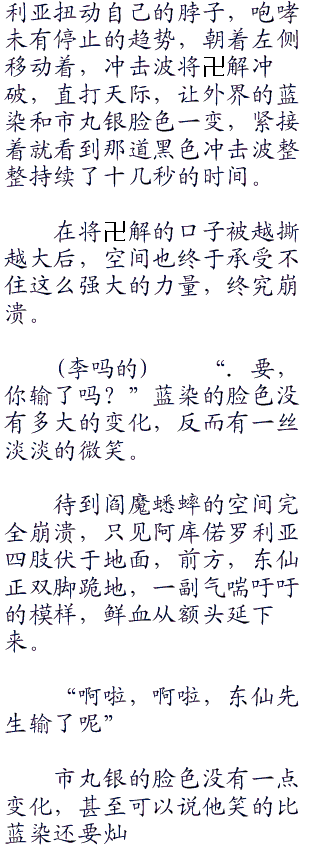 利亚扭动自己的脖子，咆哮
未有停止的趋势，朝着左侧
移动着，冲击波将卍解冲
破，直打天际，让外界的蓝
染和市丸银脸色一变，紧接
着就看到那道黑色冲击波整
整持续了十几秒的时间。
在将卍解的口子被越撕
越大后，空间也终于承受不
住这么强大的力量，终究崩
溃。
(李吗的) “．要，
你输了吗？”蓝染的脸色没
有多大的变化，反而有一丝
淡淡的微笑。
待到阎魔蟋蟀的空间完
全崩溃，只见阿库偌罗利亚
四肢伏于地面，前方，东仙
正双脚跪地，一副气喘吁吁
的模样，鲜血从额头延下
来。
“啊啦，啊啦，东仙先
生输了呢”
市丸银的脸色没有一点
变化，甚至可以说他笑的比
蓝染还要灿